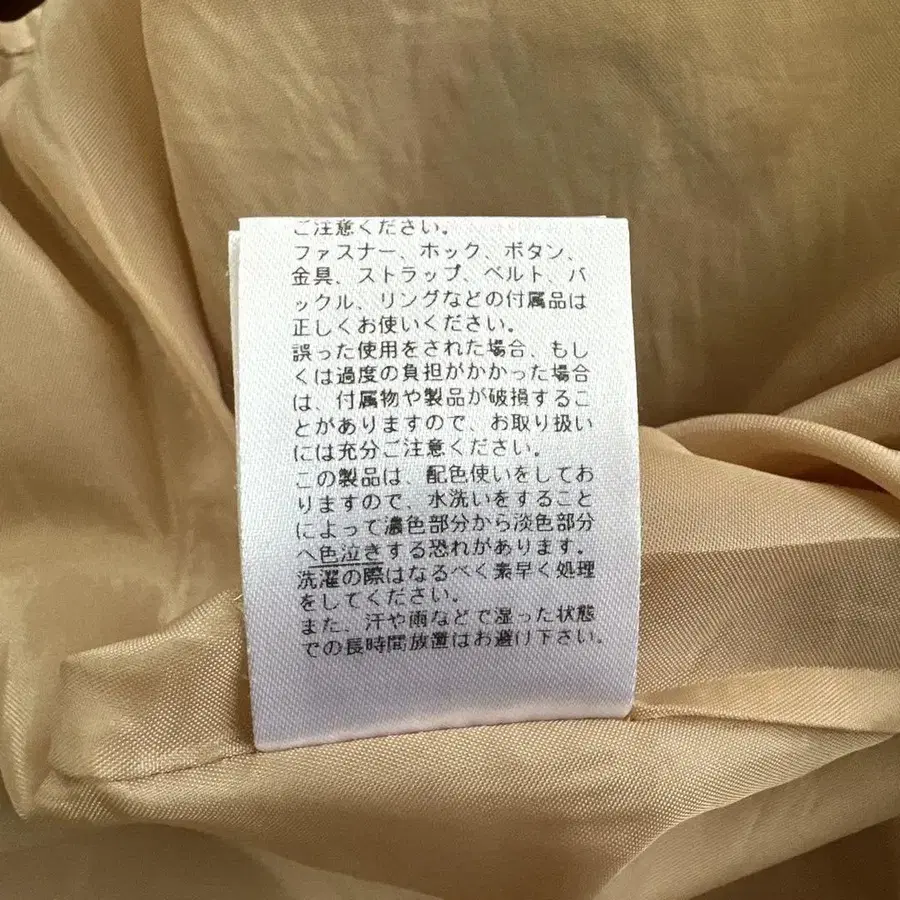 ご注意ください。
ファスナー、ホック、ボタン、
金具、ストラップ、ベルト、バ
ックル、リングなどの付属品は
正しくお使いください。
誤った使用をされた場合、もし
くは過度の負担がかかった場合
は、付属物や製品が破損するこ
とがありますので、お取り扱い
には充分ご注意ください。
この製品は、配色使いをしてお
りますので、水洗いをすること
によって濃色部分から淡色部分
へ色泣きする恐れがあります。
洗濯の際はなるべく素早く処理
をしてください。
また、汗や雨などで湿った状態
での長時間放置はお避け下さい。